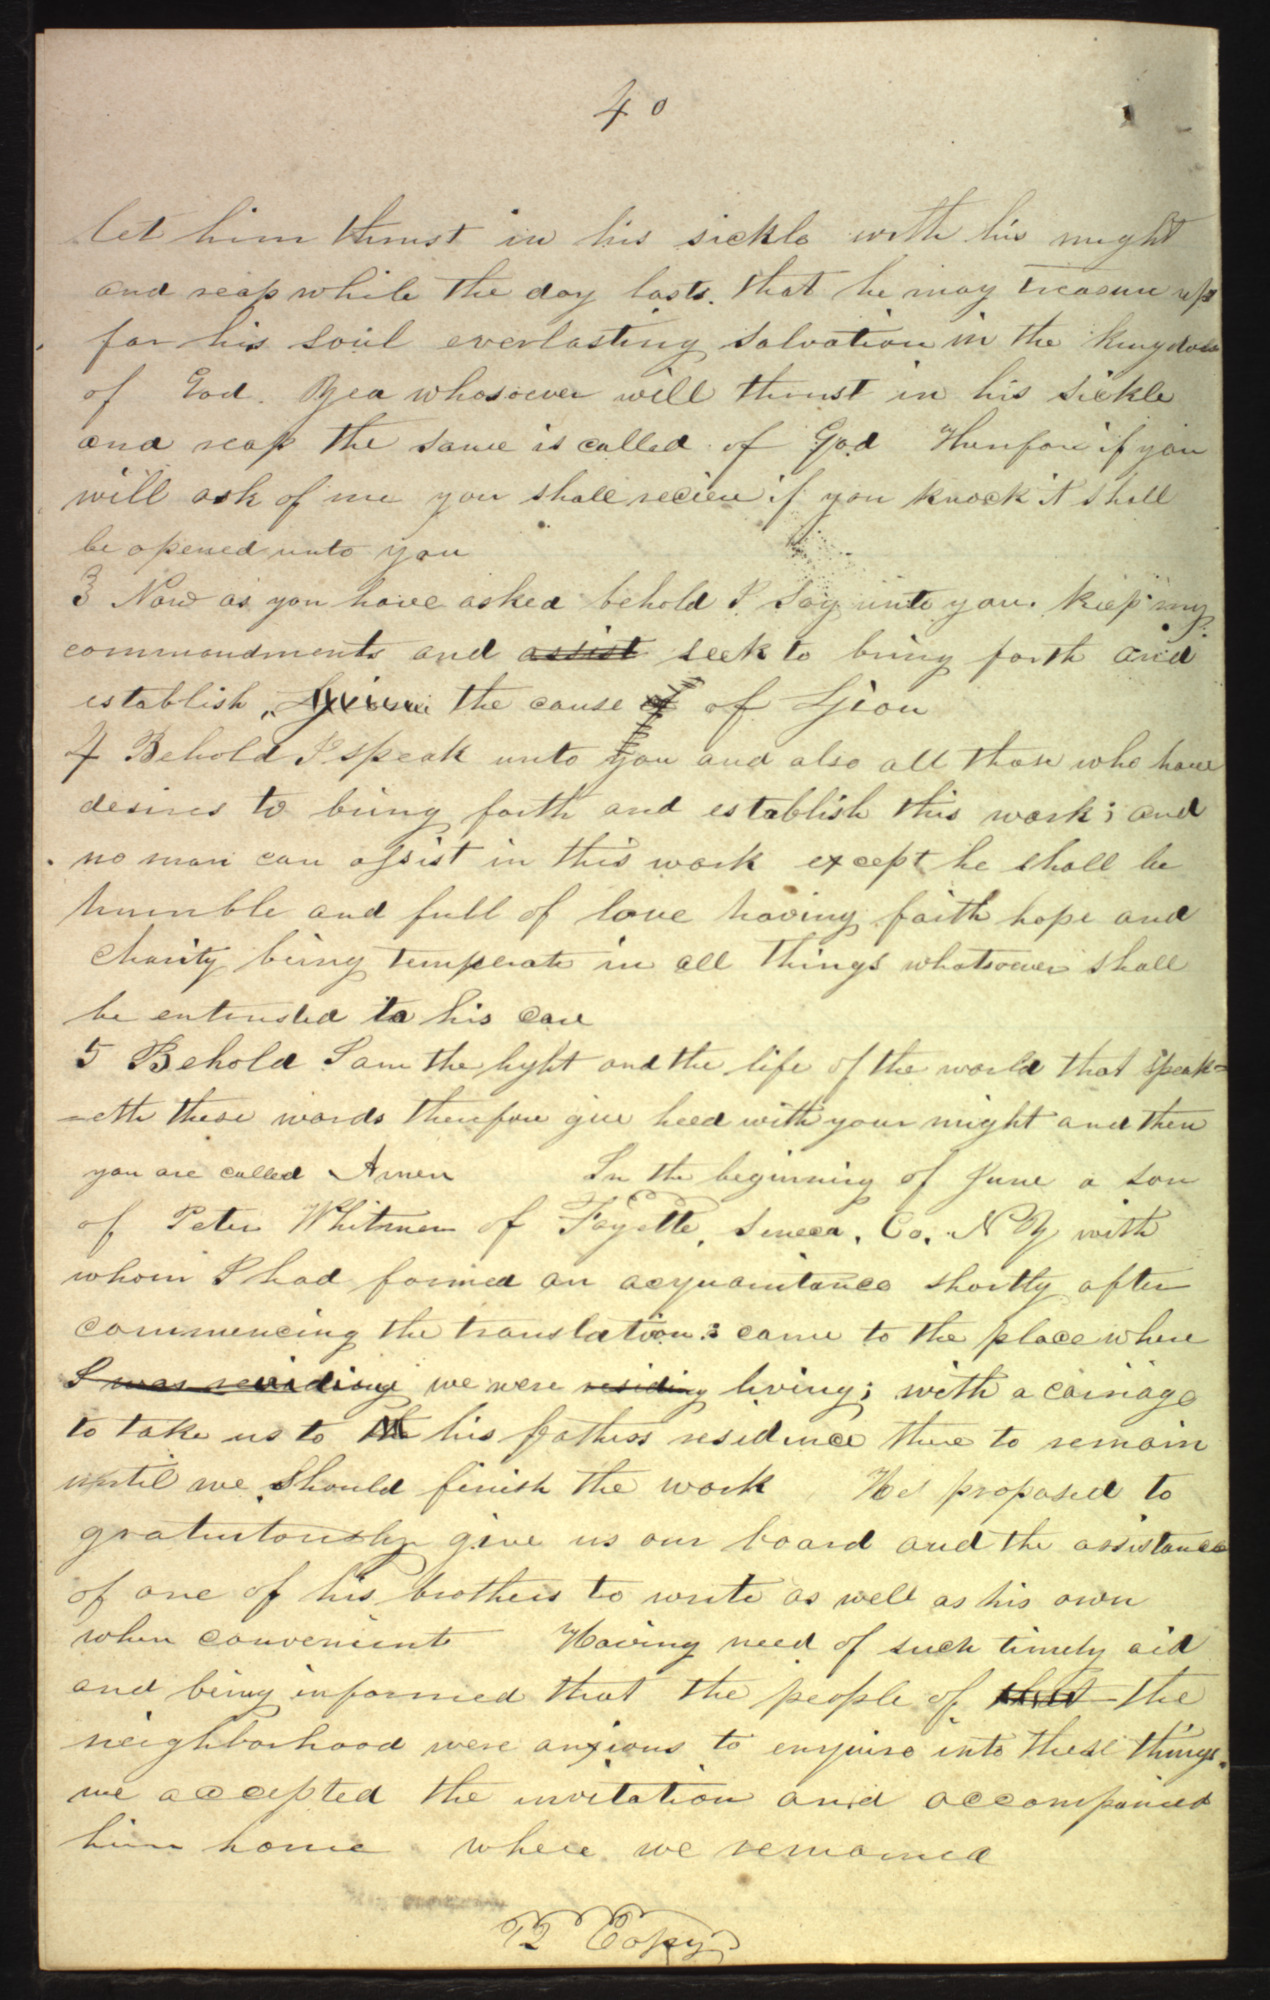 40
let him thrust in his sickle with his might
and reap while the day lasts. that he may treasure up
for his soul everlasting salvation in the kingdom
of God. Yea whosoever will thrust in his sickle
and reap the same is called of God Therefore if you
will ask of me you shall recieve if you knock it shall
be opened unto you
3 Now as you have asked behold I say unto you. Keep my
commandments and assist seek to bring forth and
establish the cause of of Zion
4 Behold I speak unto you and also all those who have
desires to bring forth and establish this work; and
no man can assist in this work except he shall be
humble and full of love having faith hope and
charity being temperate in all things whatsoever shall
be entrusted to his care
5 Behold I am the light and the life of the world that speak=
=eth these words therefore give heed with your might and then
you are called Amen In the beginning of June a son
of Peter Whitmer of Fayette, Seneca, Co. N Y with
whom I had formed an acquaintance shortly after
commencing the translation: came to the place where
I was residing we were residing living; with a carriage
to take us to his fathers residence there to remain
until we should finish the work He proposed to
gratuitously give us our board and the assistance
of one of his brothers to write as well as his own
when convenient Having need of such timely aid
and being informed that the people of that the
neighborhood were anxious to enquire into these things.
we accepted the invitation and accompanied
him home where we remained
Copy